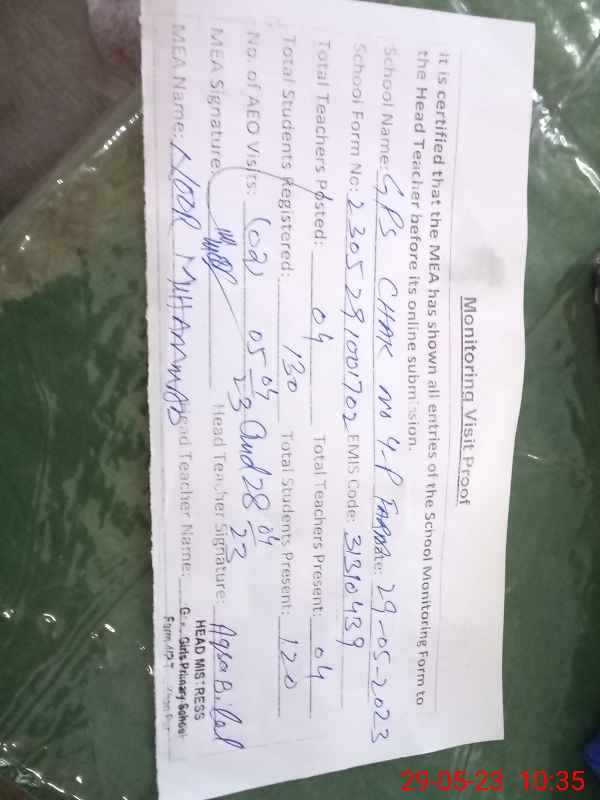 Monitoring Visit Proof
It is certified that the MEA has shown all entries of the School Monitoring Form to
the Head Teacher before its online submission.
School Name: GPS CHAK no 4-P Date: 29-05-2023
School Form No: 2305291001702 EMIS Code: 31310439
Total Teachers Posted: 04 Total Teachers Present: 04
Total Students Registered: 130 Total Students Present: 120
No. of AEO Visits: (02) 05 04 23 and 28 04 23
MEA Signature: Head Teacher Signature: Aqsa Bilal
MEA Name: NOOR MUHAMMAD Head Teacher Name:
HEAD MISTRESS
Girls Primary School
29-05-23 10:35